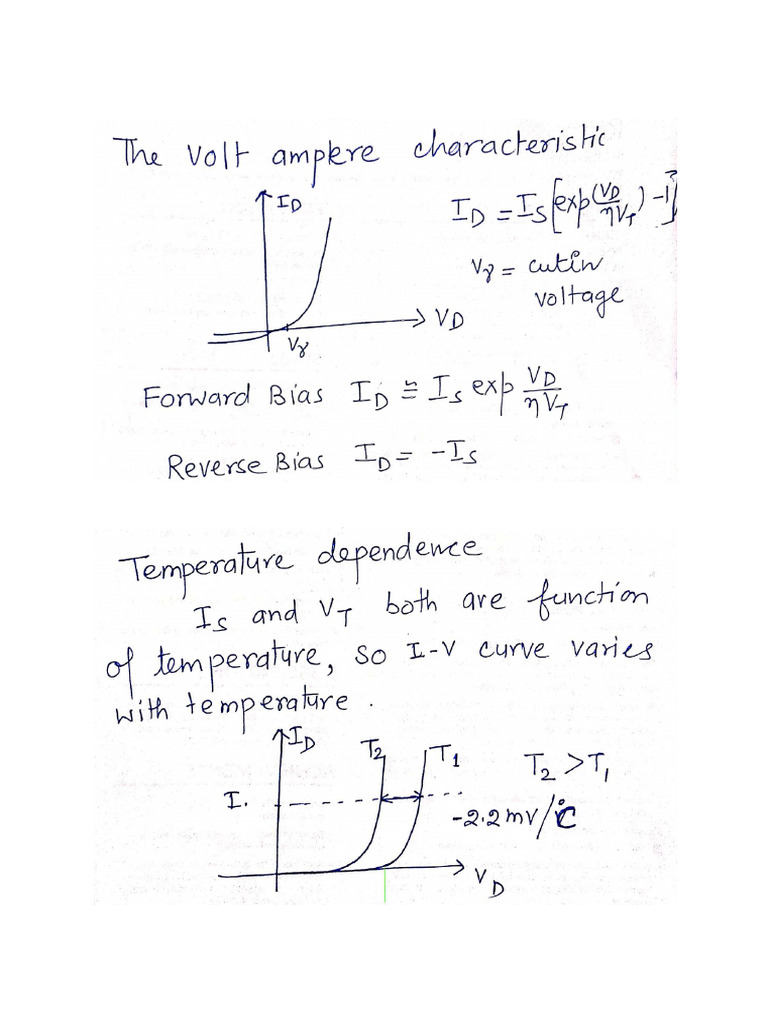 The Volt ampere characteristic
I_D
I_D = I_S [exp(V_D/ηV_T) - 1]
V_γ = cutin
voltage
V_D
V_γ
Forward Bias I_D ≅ I_s exp V_D/ηV_T
Reverse Bias I_D = -I_s
Temperature dependence
I_S and V_T both are function
of temperature, so I-V curve varies
with temperature.
I_D
T_2 T_1
T_2 > T_1
I.
-2.2mV/°C
V_D